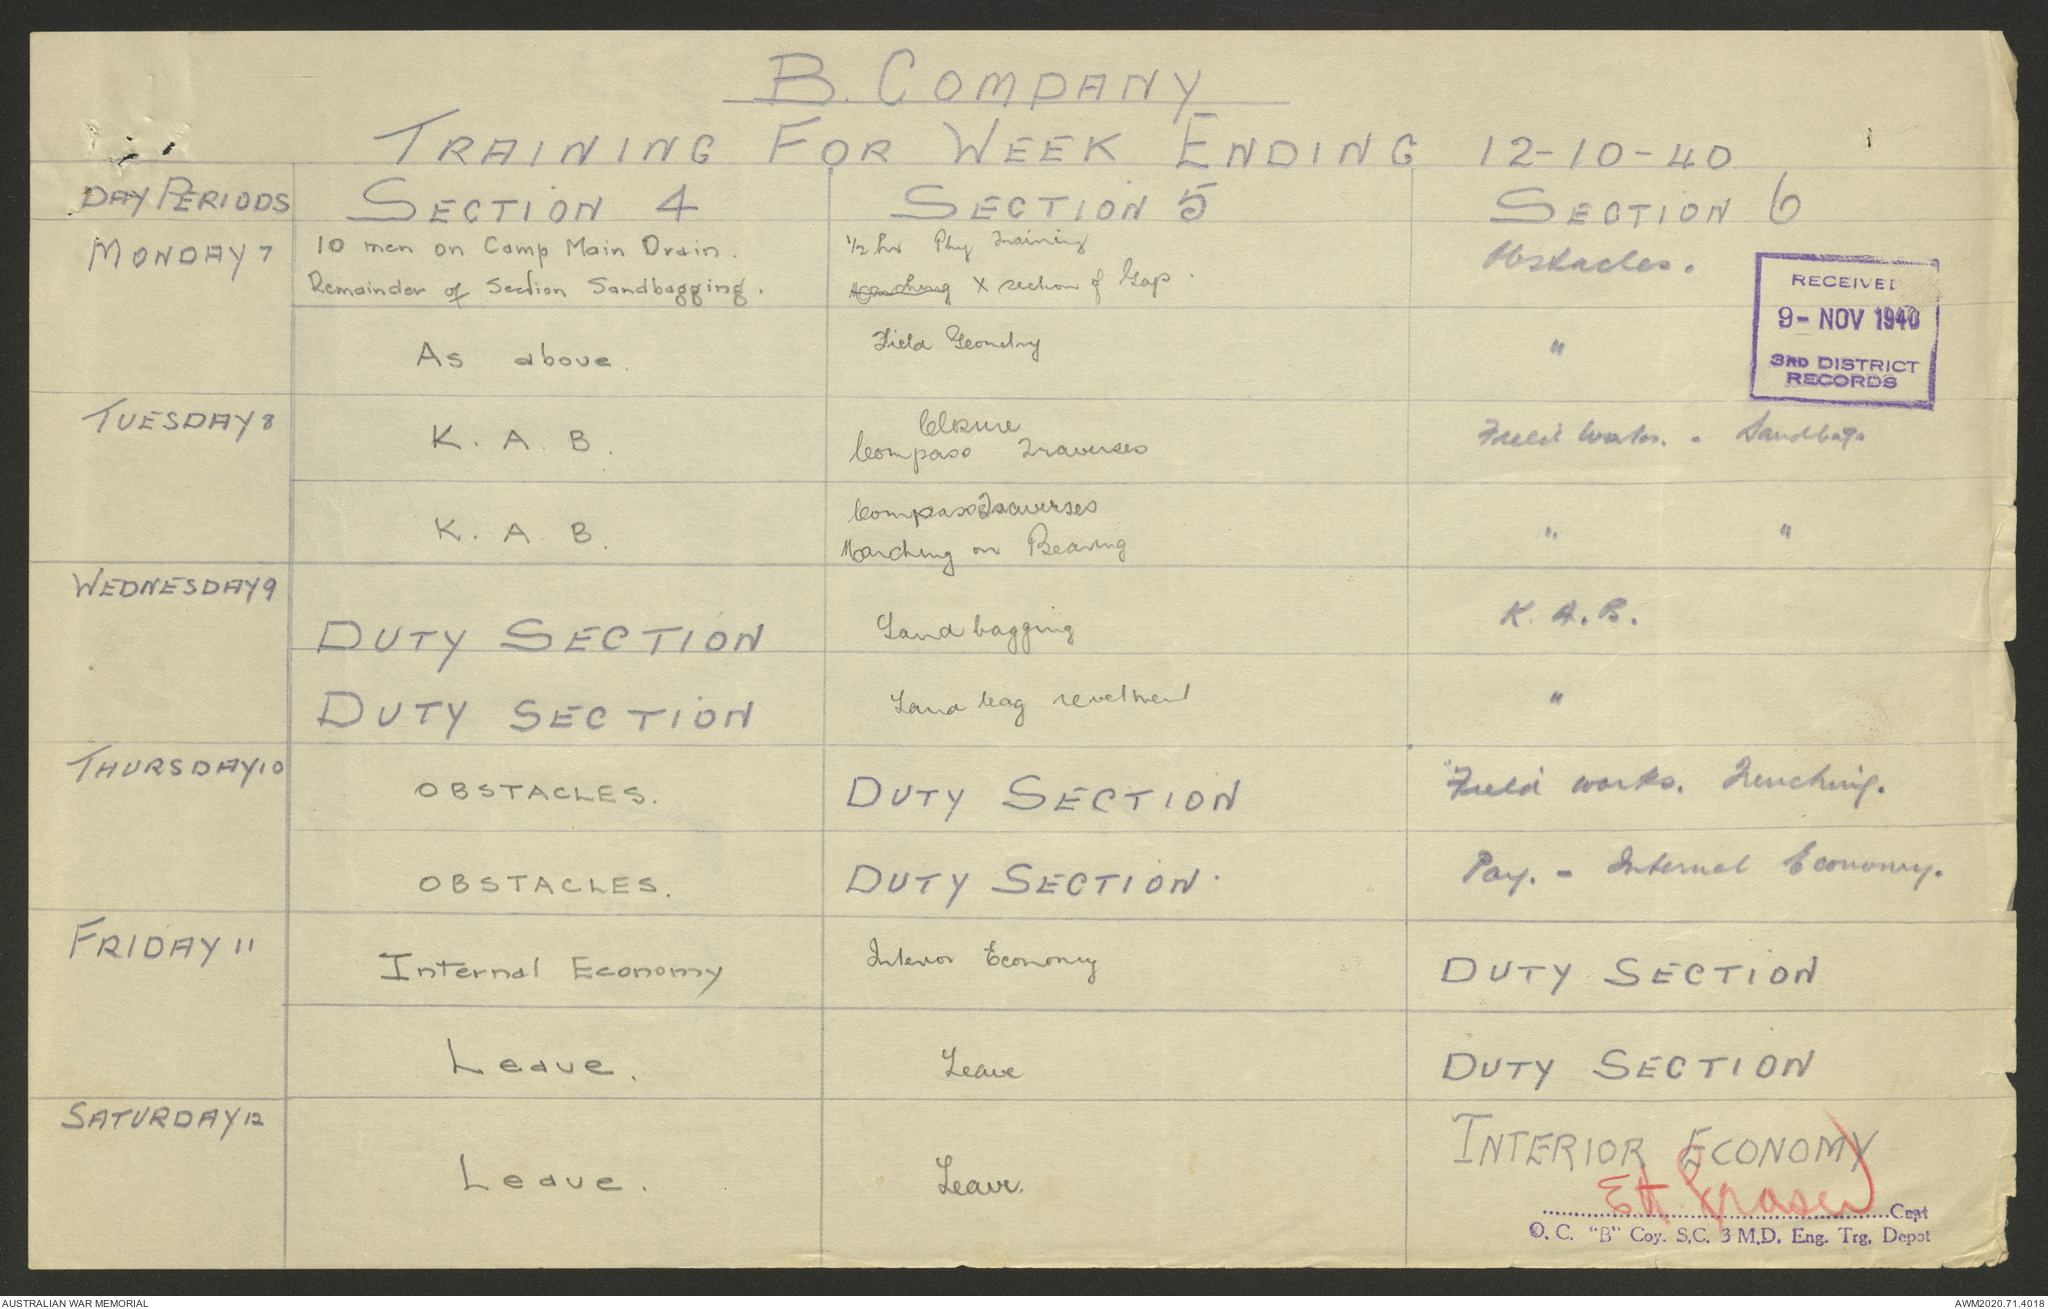 B. COMPANY
TRAINING FOR WEEK ENDING 12-10-40
DAY PERIODS SECTION 4 SECTION 5 SECTION 6
MONDAY 7 10 men on Camp Main Drain. 1/2 hr Phy Training Obstacles.
Remainder of Section Sandbagging. X section of Gap.
RECEIVED
9- NOV 1940
3RD DISTRICT
RECORDS
As above. Field Geometry "
TUESDAY 8 K. A. B. Closure Field Works. - Sandbags
Compass Traverses
K. A. B. Compass Traverses " "
Marching on Bearing
WEDNESDAY 9 DUTY SECTION Sand bagging K. A. B.
DUTY SECTION Sand bag revetment "
THURSDAY 10 OBSTACLES. DUTY SECTION Field works. Trenching.
OBSTACLES. DUTY SECTION. Pay. - Internal Economy.
FRIDAY 11 Internal Economy Interior Economy DUTY SECTION
Leave. Leave DUTY SECTION
SATURDAY 12 Leave. Leave. INTERIOR ECONOMY
EH Fraser
Capt
O. C. "B" Coy. S.C. 3 M.D. Eng. Trg. Depot
AUSTRALIAN WAR MEMORIAL AWM2020.71.4018